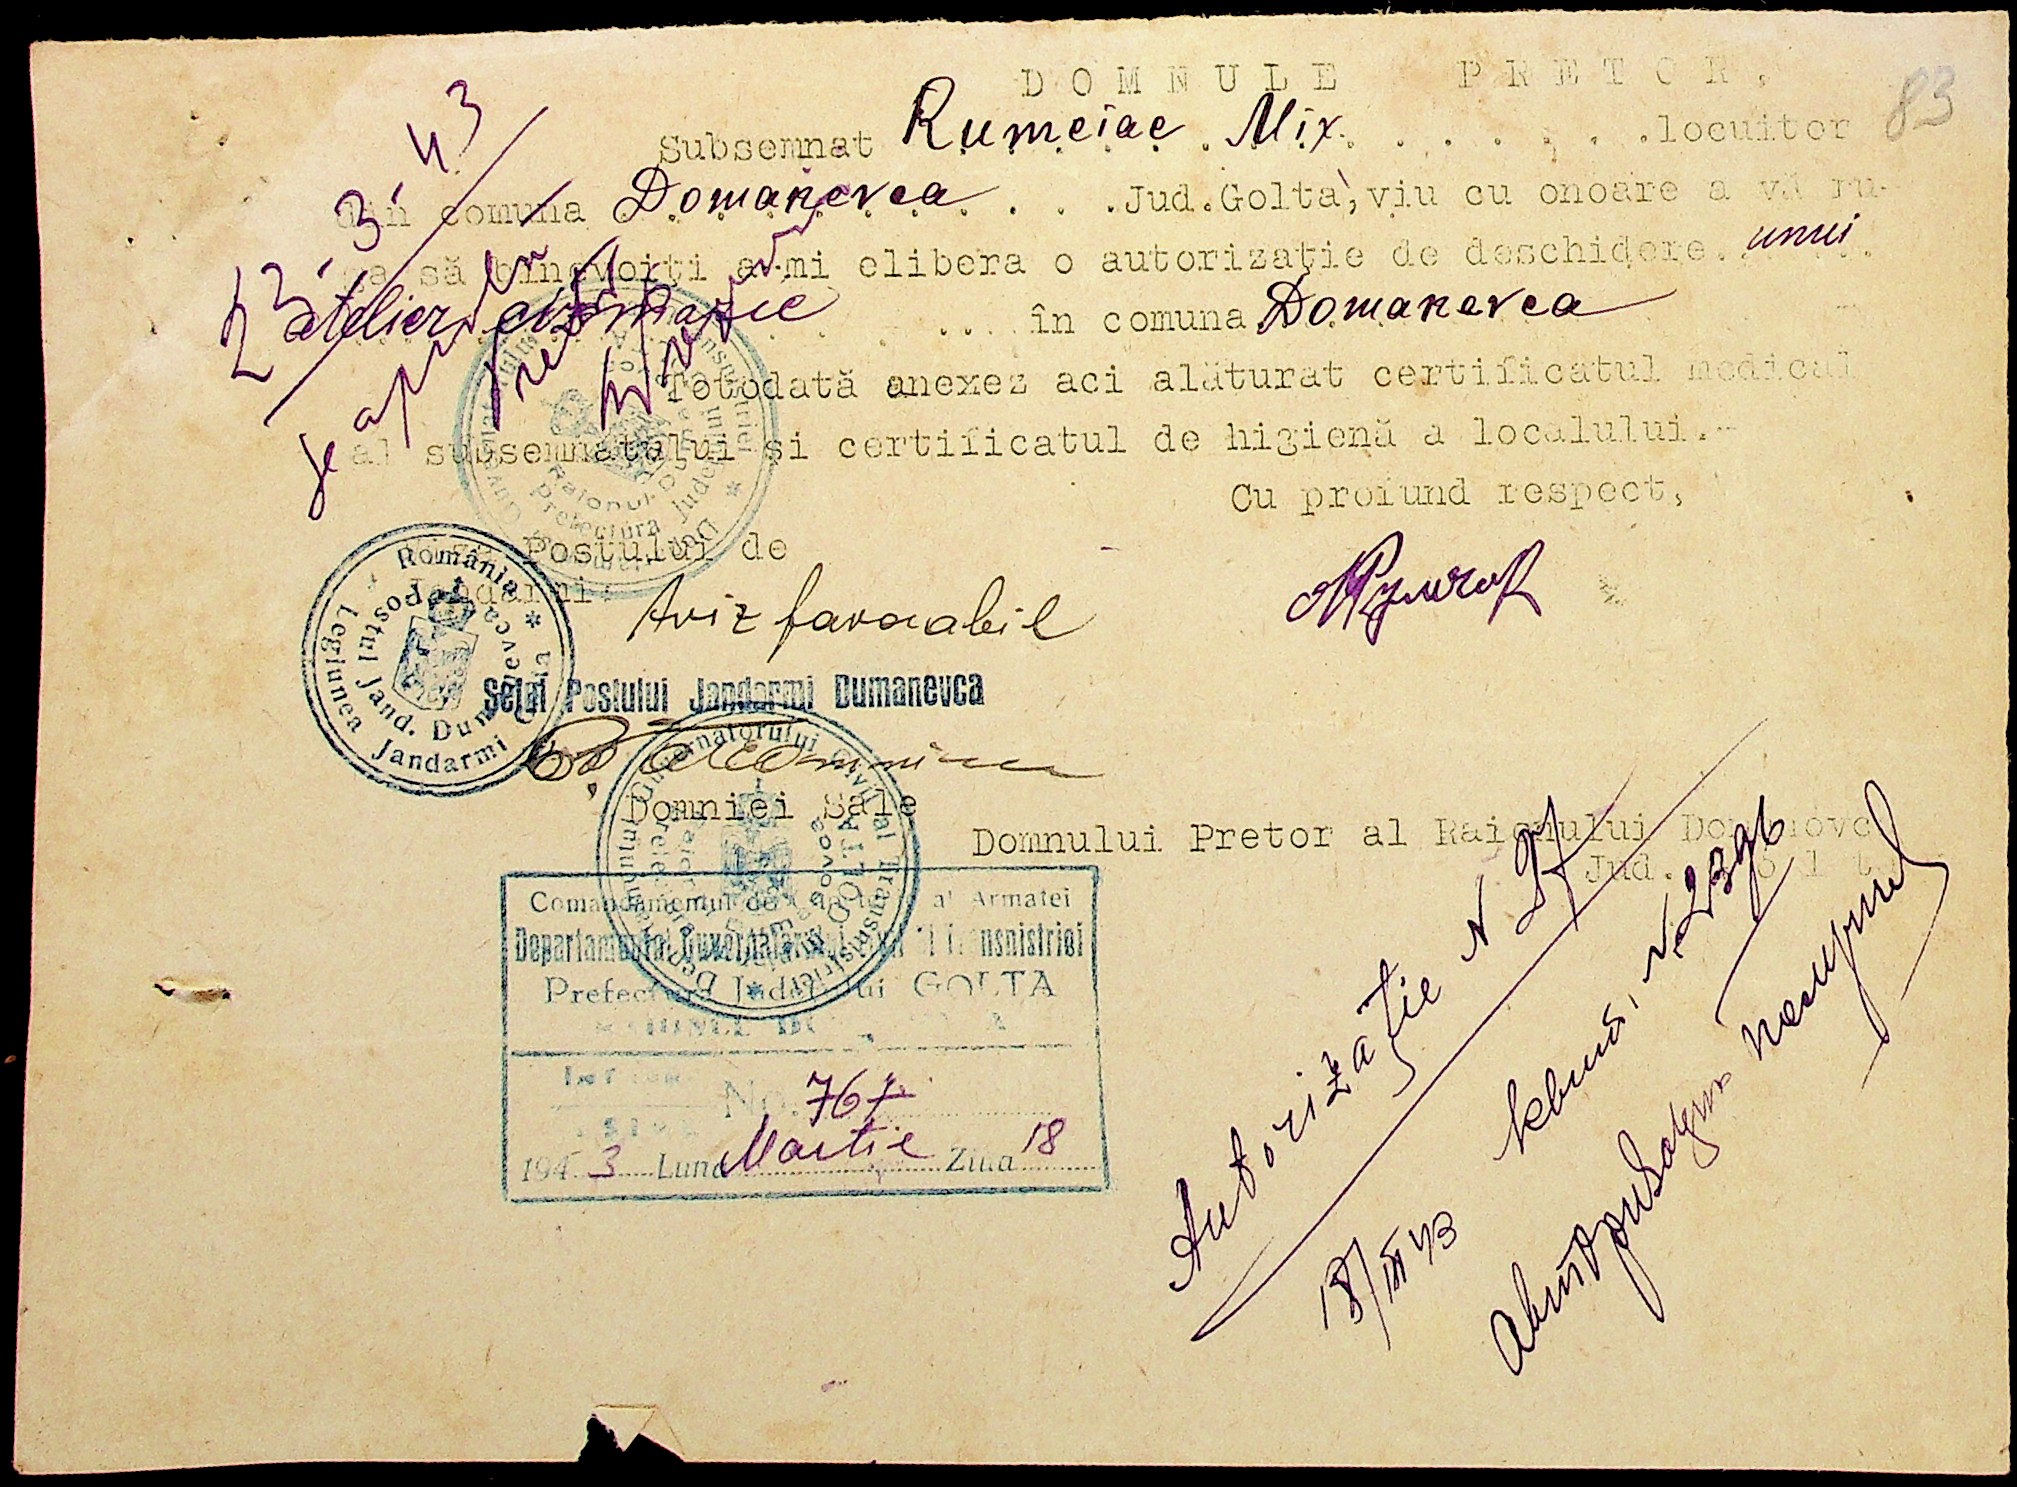 DOMNULE PRETOR,
83
Subsemnat Rumeiac Mix. . . . . . . locuitor
din comuna Domanevca . . . Jud.Golta, viu cu onoare a vă ru-
ga să binevoiţi a-mi elibera o autorizaţie de deschidere unui
atelier cizmarie . . . în comuna Domanevca
Totodată anexez aci alăturat certificatul medical
al subsemnatului şi certificatul de higienă a localului.-
Cu profund respect,
23-3-43
Se aprobă
Pretor
Postului de
Jandarmi:
Aviz favorabil
România
Legiunea Jandarmi Golta
Postul Jand. Dumanevca
Şeful Postului Jandarmi Dumanevca
Domniei Sale
Domnului Pretor al Raionului Domanovca
Jud. Golta
Departamentul Guvernatorului Civil al Transnistriei
Prefectura Judeţului GOLTA
Comandamentul de al Armatei
Departamentul Guvernatorului Civil al Transnistriei
Prefectura Judeţului GOLTA
No. 767
1943 Luna Martie Ziua 18
Autorizaţie N 27
18/III 43 квит. N 2396
Авторизацию получил